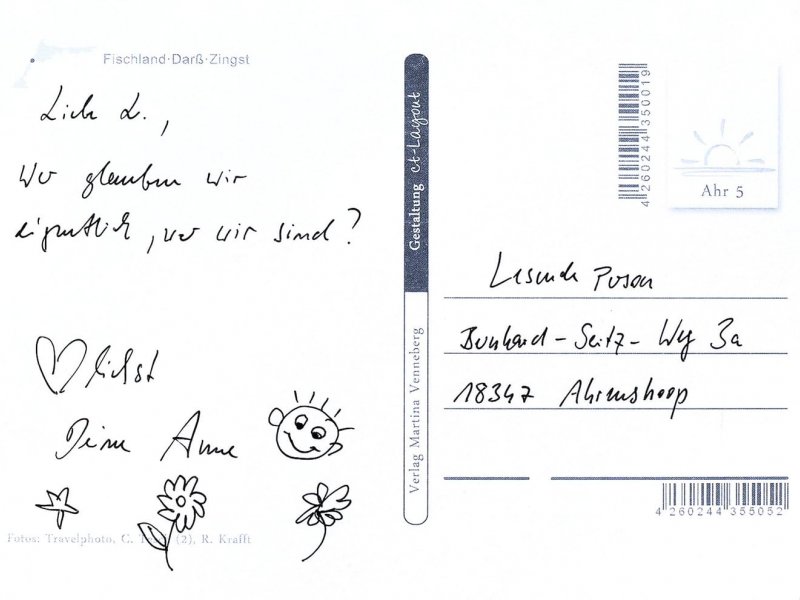 Fischland·Darß·Zingst
Liebe L.,
Wer glauben wir
eigentlich, wer wir sind?
lichst
Deine Anne
Fotos: Travelphoto, C. (2), R. Krafft
Gestaltung ct-Layout
Verlag Martina Venneberg
4260244350019
Ahr 5
Lesende Person
Bernhard-Seitz-Weg 3a
18347 Ahrenshoop
4260244355052